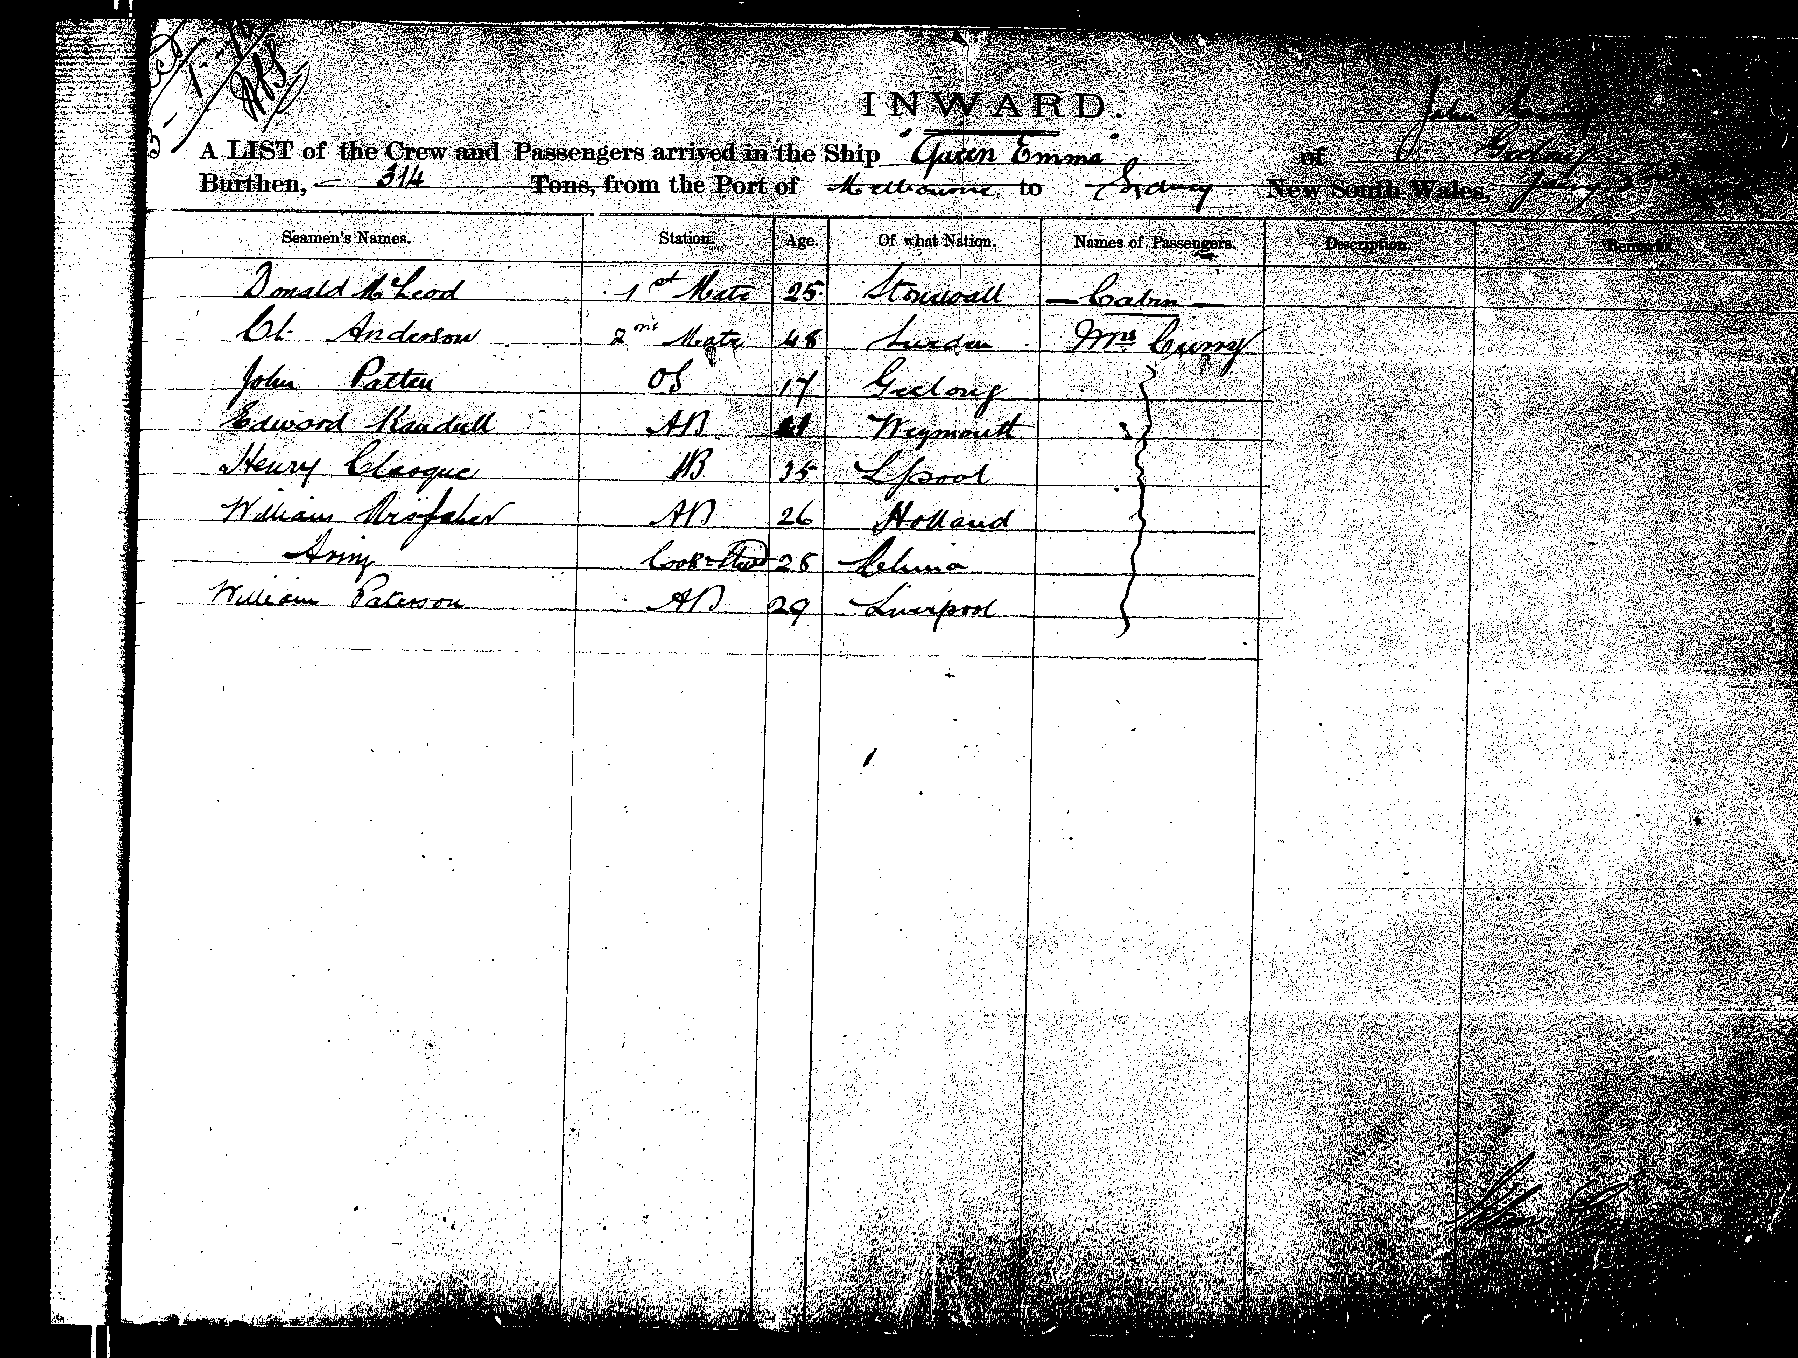 INWARD.
John
A LIST of the Crew and Passengers arrived in the Ship "Queen Emma" of Geelong
Burthen, 314 Tons, from the Port of Melbourne to Sydney New South Wales,
Seamen's Names. Station. Age. Of what Nation. Names of Passengers. Description. Remarks
Donald McLeod 1st Mate 25 Stonewall — Cabin —
Ch. Anderson 2nd Mate 48 Sweden Mrs Curry
John Patten OS 17 Geelong
Edward Randell AB 21 Weymouth
Henry Clasque AB 35 L'pool
William AB 26 Holland
Cook & Stwd 28 China
William Paterson AB 29 Liverpool